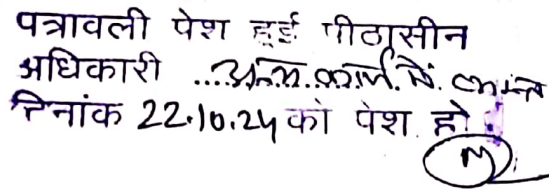 पत्रावली पेश हुई पीठासीन
अधिकारी ...अन्य कार्य में व्यस्त
दिनांक 22.10.24 को पेश हो।